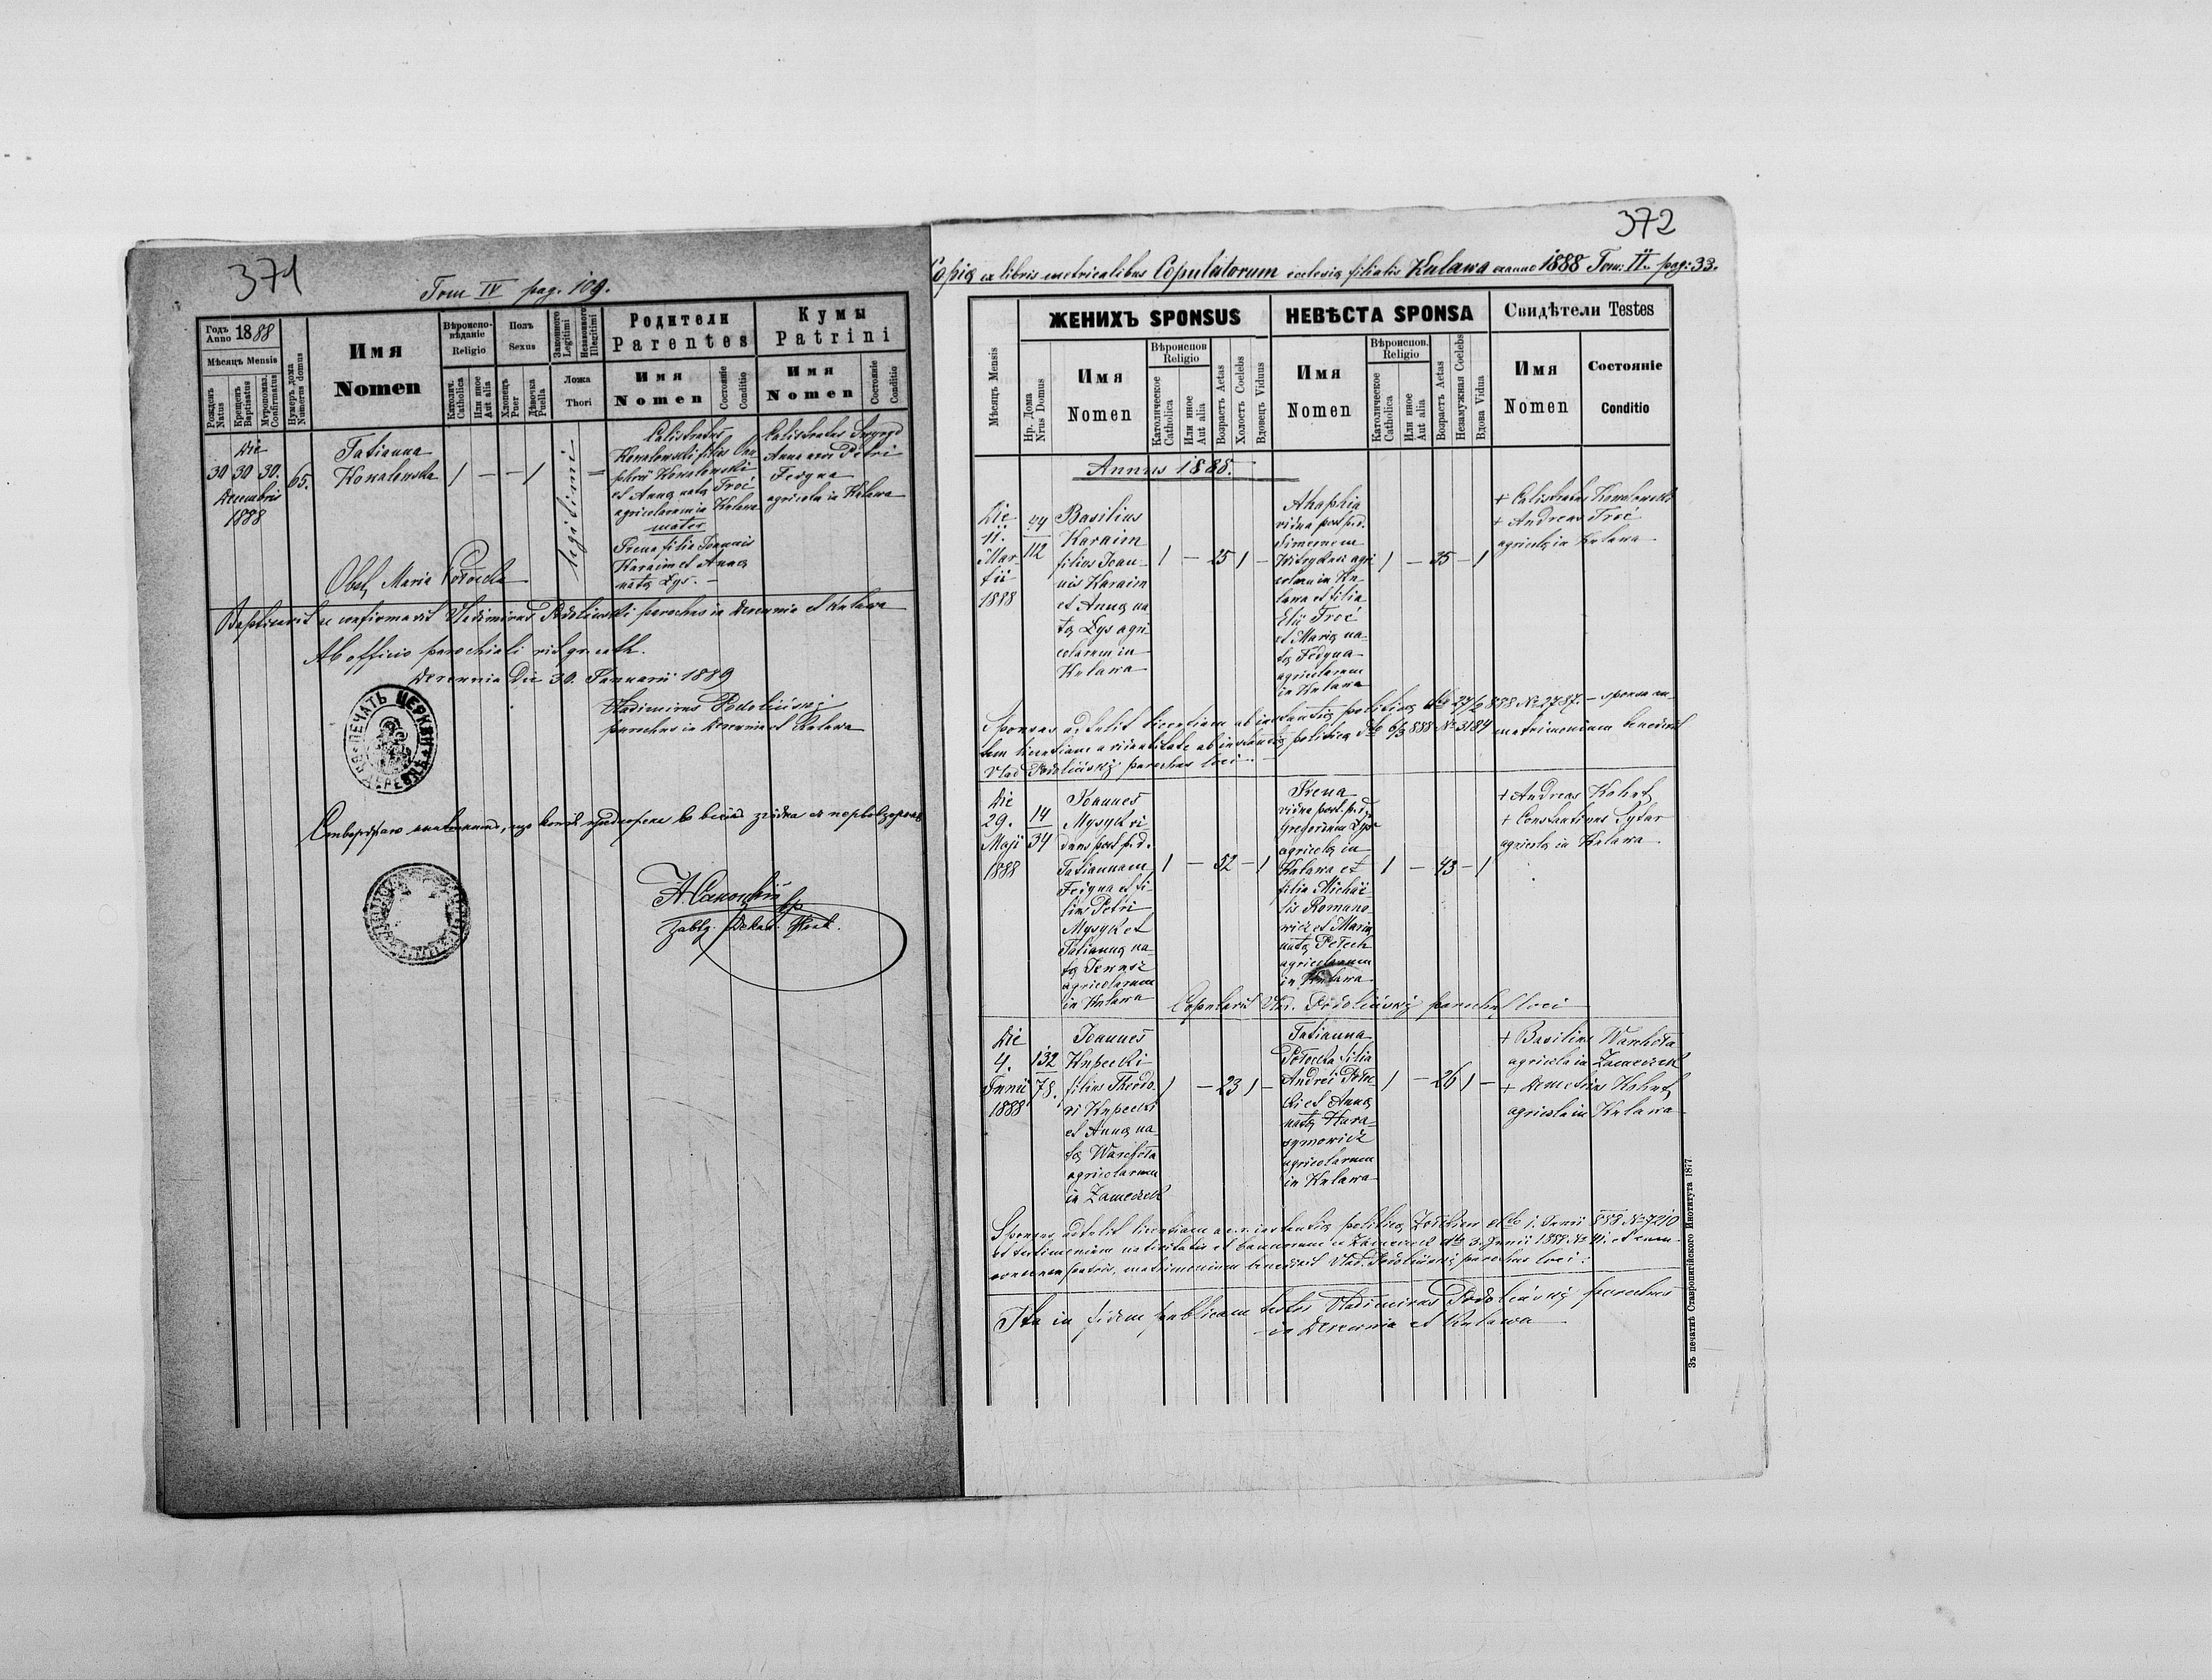 371
Tom IV pag. 109.
Годъ Anno 1888
Мѣсяцъ Mensis
Рожденъ Natus
Крещенъ Baptisatus
Мѵропомаз. Confirmatus
Нумеръ дома Numerus domus
Имя Nomen
Вѣроисповѣданіе Religio
Католич. Catholica
Или иное Aut alia
Полъ Sexus
Хлопецъ Puer
Дѣвочка Puella
Законного Legitimi
Незаконного Illegitimi
Ложа Thori
Родители Parentes
Имя Nomen
Состояніе Conditio
Кумы Patrini
Имя Nomen
Состояніе Conditio
Die
30 30 30.
Decembris
1888
65.
Tatianna
Kowalewska
/ – – /
legitimi
–
Calistratus
Kowalewski filius
Kowalewski
et Annæ natæ Troć
agricolarum in Kulawa
mater
Irena filia Joannis
Karaim et Annæ
natæ Lys. –
Calistratus
Anna uxor Petri
Fedyna
agricola in Kulawa
Obst. Maria Potocka
Baptisavit ac confirmavit Vladimirus Podoliński parochus in Derewnia et Kulawa
Ab officio parochiali rit. gr. cath.
Derewnia Die 30. Januarii 1889
Vladimirus Podolinskij
parochus in Derewnia et Kulawa
ПЕЧАТЬ ЦЕРКВИ ВЪ ДЕРЕВНѢ
372
Copia ex libris metricalibus Copulatorum ecclesiæ filialis Kulawa ex anno 1888 Tom: II. pag: 33.
Мѣсяцъ Mensis
Нр. Дома Nrus Domus
ЖЕНИХЪ SPONSUS
Имя Nomen
Вѣроиспов Religio
Католическое Catholica
Или иное Aut alia
Возрастъ Aetas
Холостъ Coelebs
Вдовецъ Viduus
НЕВѢСТА SPONSA
Имя Nomen
Вѣроиспов. Religio
Католическое Catholica
Или иное Aut alia
Возрастъ Aetas
Незамужная Coelebs
Вдова Vidua
Свидѣтели Testes
Имя Nomen
Состояніе Conditio
Annus 1888.
Die
11.
Martii
1888
44
112
Basilius
Karaim
filius Joan-
nis Karaim
et Annæ na-
tæ Lys agri-
colarum in
Kulawa
/ – 25 / –
Ahaphia
vidua post p.d.
Simeonem
agri-
colam in Ku-
lawa et filia
Elii Troć
et Mariæ na-
tæ Fedyna
agricolarum
in Kulawa
/ – 35 – /
+ Calistratus Kowalewski
+ Andreas Troć
agricolæ in Kulawa
Sponsus adtulit licentiam ab instantia politica dto 27/2 888 No 2787. – sponsa au-
tem licentiam a viduitate ab instantia politica dto 6/3 888 No 3184 matrimonium benedixit
Vlad. Podolinskij parochus loci. –
Die
29.
Maji
1888
14
34
Joannes
Mysyk vi-
duus post p.d.
Tatiannam
Fedyna et fi-
lius Petri
Mysyk et
Tatiannæ na-
tæ
agricolarum
in Kulawa
/ – 52 – /
Irena
vidua post. p.d.
Gregorium Lys
agricolæ in
Kulawa et
filia Michaë-
lis Romano-
wicz et Mariæ
natæ Pelech
agricolarum
in Kulawa
/ – 43 – /
+ Andreas Kohut
+ Constantinus Sytar
agricolæ in Kulawa
Copulavit Vlad. Podolinskij parochus loci
Die
4.
Junii
1888
132
78.
Joannes
Kupecki
filius Theodo-
ri Kupecki
et Annæ na-
tæ Warchoła
agricolarum
in Zameczek
/ – 23 / –
Tatianna
Potocka filia
Andrei Potoc-
ki et Annæ
natæ Hara-
symowicz
agricolarum
in Kulawa
/ – 26 / –
+ Basilius Warchoła
agricola in Zameczek
+ Demetrius Kohut
agricola in Kulawa
Sponsus adtulit licentiam a c.r. instantia politica Żółkiew dto 1. Junii 888 No 7210
et testimonium nativitatis et bannorum ex Zameczek dto 3. Junii 1888 No 41. et cum
consensu patris, matrimonium benedixit Vlad. Podolinskij parochus loci:
Ita in fidem publicam testor Vladimirus Podolinskij parochus
in Derewnia et Kulawa
Зъ печатнѣ Ставропигійского Института 1877.